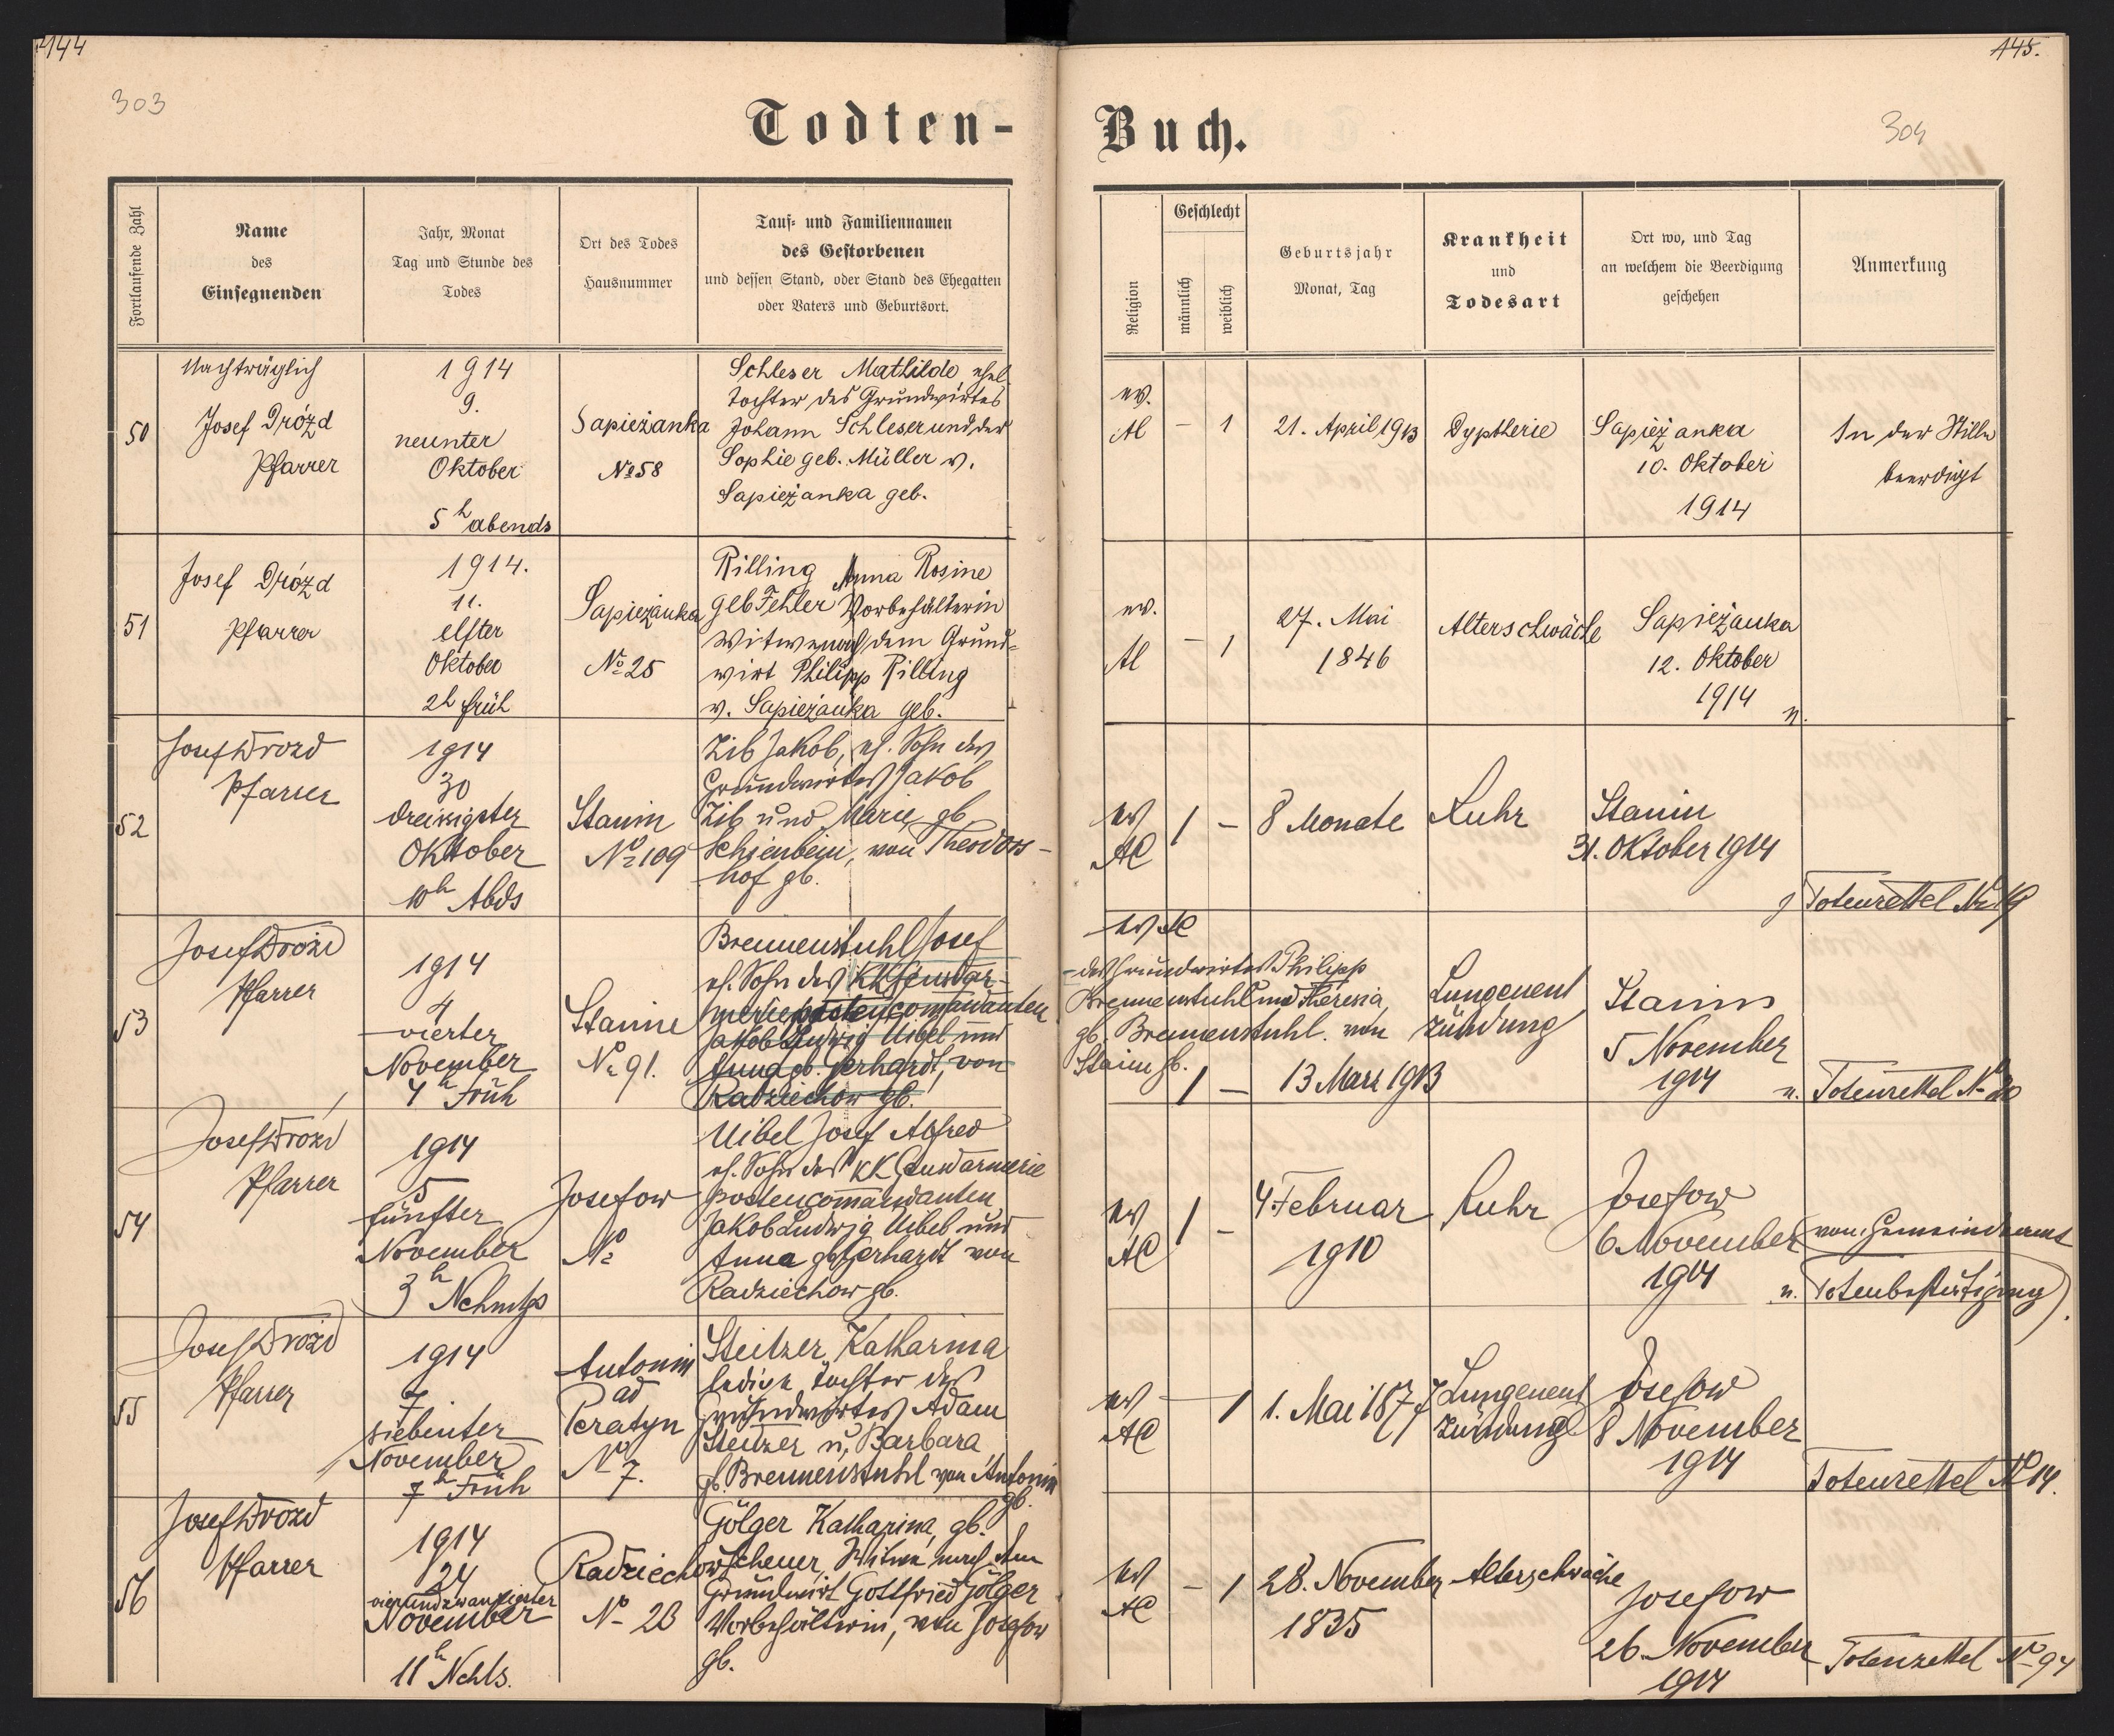 144
303
Todten-
Fortlaufende Zahl
Name
des
Einsegnenden
Jahr, Monat
Tag und Stunde des
Todes
Ort des Todes
Hausnummer
Tauf- und Familiennamen
des Gestorbenen
und dessen Stand, oder Stand des Ehegatten
oder Vaters und Geburtsort.
50
Nachträglich
Josef Drózd
Pfarrer
1914
9.
neunter
Oktober
5 h abends
Sapieżanka
No 58
Schleser Mathilde ehel.
Tochter des Grundwirtes
Johann Schleser und der
Sophie geb. Müller v.
Sapieżanka geb.
51
Josef Drózd
Pfarrer
1914.
11.
elfter
Oktober
2h früh
Sapieżanka
No 25
Rilling Anna Rosine
geb Fehler Vorbehälterin
Witwe nach dem Grund-
wirt Philipp Rilling
v. Sapieżanka geb.
52
Josef Drozd
Pfarrer
1914
30
dreissigster
Oktober
10h Abds
Stanin
No 109
Zib Jakob, eh. Sohn des
Grundwirtes Jakob
Zib und Marie, gb
Schienbein, von Theodors-
hof gb.
53
Josef Drozd
Pfarrer
1914
4
vierter
November
4h Früh
Stanin
No 91.
Brennenstuhl Josef
eh. Sohn des KK Gendar-
meriepostencommandanten
Jakob Ludwig Uibel und
Anna gb. Gerhardt, von
Radziechow gb.
54
Josef Drozd
Pfarrer
1914
5
fünfter
November
3h Nchmtgs
Josefow
No
Uibel Josef Alfred
eh. Sohn des KK Gendarmerie
postencommandanten
Jakob Ludwig Uibel und
Anna gb Gerhardt von
Radziechow gb.
55
Josef Drozd
Pfarrer
1914
7
siebenter
November
7h Früh
Antonin
ad
Peratyn
No 7.
Steitzer Katharina
ledige Tochter des
Grundwirtes Adam
Steitzer u. Barbara
gb. Brennenstuhl von Antonin
gb.
56
Josef Drozd
Pfarrer
1914
24
vierundzwanzigster
November
11h Nchts.
Radziechow
No 26
Gölger Katharina, gb.
Scheuer, Witwe nach dem
Grundwirt Gottfried Gölger
Vorbehälterin, von Josefow
gb.
145.
304
Buch.
Religion
Geschlecht
männlich
weiblich
Geburtsjahr
Monat, Tag
Krankheit
und
Todesart
Ort wo, und Tag
an welchem die Beerdigung
geschehen
Anmerkung
ev.
AC
–
1
21. April 1913
Dyptherie
Sapieżanka
10. Oktober
1914
In der Stille
beerdigt
ev.
AC
–
1
27. Mai
1846
Alterschwäche
Sapieżanka
12. Oktober
1914
n.
ev
AC
1
–
8 Monate
Ruhr
Stanin
31. Oktober 1914
Totenzettel No 19
ev AC
des Grundwirtes Philipp
Brennenstuhl und Theresia,
gb. Brennenstuhl. von
Stanin gb.
1
–
13 März 1913
Lungenent
zündung
Stanin
5 November
1914
n. Totenzettel No 20
ev
AC
1
–
4 Februar
1910
Ruhr
Josefow
6 November
1914
(vom Gemeindeamt
n. Totenbestätigung).
ev
AC
–
1
1. Mai 1877
Lungenent
zündung
Josefow
8 November
1914
Totenzettel No 14.
ev
AC
–
1
28. November
1835
Altersschwäche
Josefow
26. November
1914
Totenzettel No 94